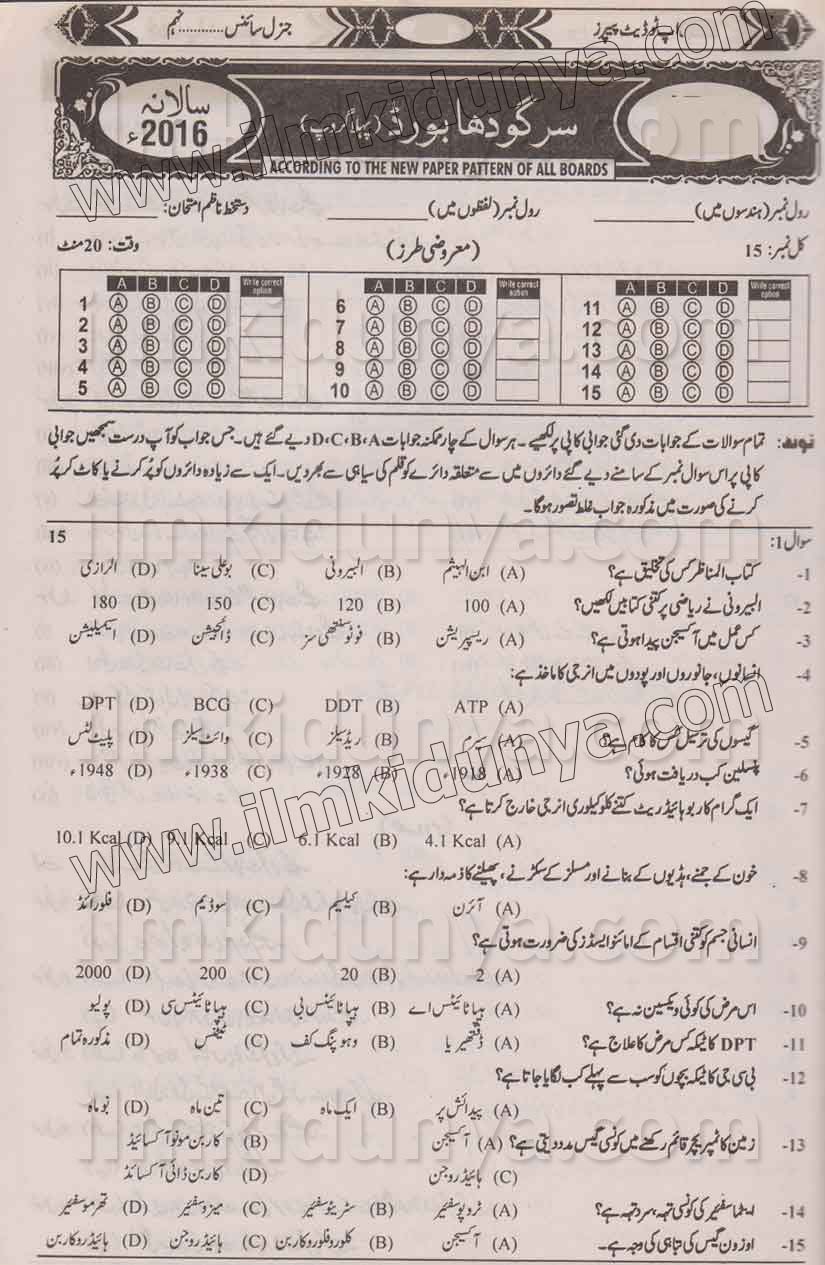 اپ ٹو ڈیٹ پیپرز
جنرل سائنس............نہم
سرگودھا بورڈ (پہلا گروپ)
سالانہ
2016ء
ACCORDING TO THE NEW PAPER PATTERN OF ALL BOARDS
رول نمبر (ہندسوں میں) ــــــــــ رول نمبر (لفظوں میں) ــــــــــ دستخط ناظم امتحان: ــــــــــ
کل نمبر: 15 (معروضی طرز) وقت: 20 منٹ
A B C D Write correct option A B C D Write correct option A B C D Write correct option
1 A B C D 6 A B C D 11 A B C D
2 A B C D 7 A B C D 12 A B C D
3 A B C D 8 A B C D 13 A B C D
4 A B C D 9 A B C D 14 A B C D
5 A B C D 10 A B C D 15 A B C D
نوٹ: تمام سوالات کے جوابات دی گئی جوابی کاپی پر لکھیے۔ ہر سوال کے چار ممکنہ جوابات D،C،B،A دیے گئے ہیں۔ جس جواب کو آپ درست سمجھیں جوابی
کاپی پر اس سوال نمبر کے سامنے دیے گئے دائروں میں سے متعلقہ دائرے کو قلم کی سیاہی سے بھر دیں۔ ایک سے زیادہ دائروں کو پُر کرنے یا کاٹ کر پُر
کرنے کی صورت میں مذکورہ جواب غلط تصور ہوگا۔
سوال 1: 15
1- کتاب المناظر کس کی تخلیق ہے؟ (A) ابن الہیثم (B) البیرونی (C) بوعلی سینا (D) الرازی
2- البیرونی نے ریاضی پر کتنی کتابیں لکھیں؟ (A) 100 (B) 120 (C) 150 (D) 180
3- کس عمل میں آکسیجن پیدا ہوتی ہے؟ (A) ریسپریشن (B) فوٹوسنتھی سز (C) ڈائجیشن (D) ایسیمیلیشن
4- انسانوں، جانوروں اور پودوں میں انرجی کا ماخذ ہے:
(A) ATP (B) DDT (C) BCG (D) DPT
5- گیسوں کی ترسیل کس کا کام ہے؟ (A) سیرم (B) ریڈ سیلز (C) وائٹ سیلز (D) پلیٹ لٹس
6- پنسلین کب دریافت ہوئی؟ (A) 1918ء (B) 1928ء (C) 1938ء (D) 1948ء
7- ایک گرام کاربوہائیڈریٹ کتنے کلوکیلوری انرجی خارج کرتا ہے؟
(A) 4.1 Kcal (B) 6.1 Kcal (C) 9.1 Kcal (D) 10.1 Kcal
8- خون کے جمنے، ہڈیوں کے بنانے اور مسلز کے سکڑنے، پھیلنے کا ذمہ دار ہے:
(A) آئرن (B) کیلسیم (C) سوڈیم (D) فلورائڈ
9- انسانی جسم کو کتنی اقسام کے امائنو ایسڈز کی ضرورت ہوتی ہے؟
(A) 2 (B) 20 (C) 200 (D) 2000
10- اس مرض کی کوئی ویکسین نہ ہے؟ (A) ہیپاٹائیٹس اے (B) ہیپاٹائیٹس بی (C) ہیپاٹائیٹس سی (D) پولیو
11- DPT کا ٹیکہ کس مرض کا علاج ہے؟ (A) ڈفتھیریا (B) وہوپنگ کف (C) ٹیٹنس (D) مذکورہ تمام
12- بی سی جی کا ٹیکہ بچوں کو سب سے پہلے کب لگایا جاتا ہے؟
(A) پیدائش پر (B) ایک ماہ (C) تین ماہ (D) نو ماہ
13- زمین کا ٹمپریچر قائم رکھنے میں کونسی گیس مدد دیتی ہے؟ (A) آکسیجن (B) کاربن مونو آکسائیڈ
(C) ہائیڈروجن (D) کاربن ڈائی آکسائڈ
14- ایٹماسفیئر کی کونسی تہہ، سرد تہہ ہے؟ (A) ٹروپوسفیئر (B) سٹریٹوسفیئر (C) میزوسفیئر (D) تھرموسفیئر
15- اوزون گیس کی تباہی کی وجہ ہے۔ (A) آکسیجن (B) کلوروفلوروکاربن (C) ہائیڈروجن (D) ہائیڈروکاربن
www.ilmkidunya.com
www.ilmkidunya.com
ilmkidunya.com
ilmkidunya.com
ilmkidunya.com
ilmkidunya.com
ilmkidunya.com